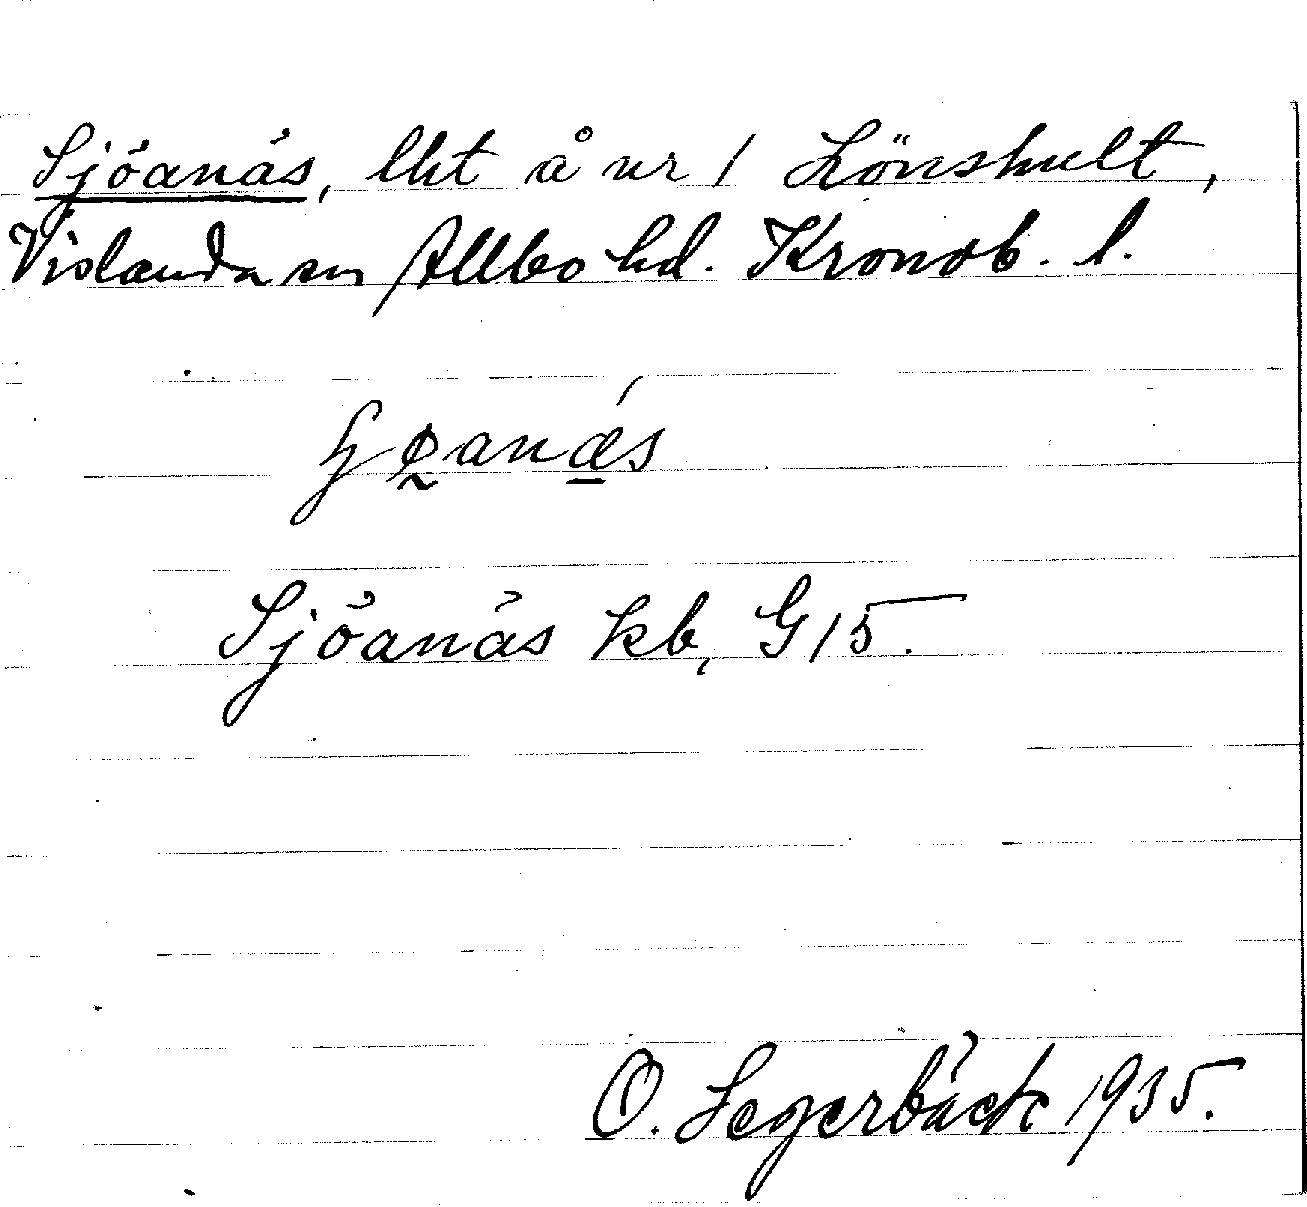 Sjöanäs, lht å nr 1 Lönshult,
Vislanda sn Allbo hd. Kronob. l.
ɧø̰anǽ̠s
Sjöanäs kb, G15.
O. Segerbäck 1935.